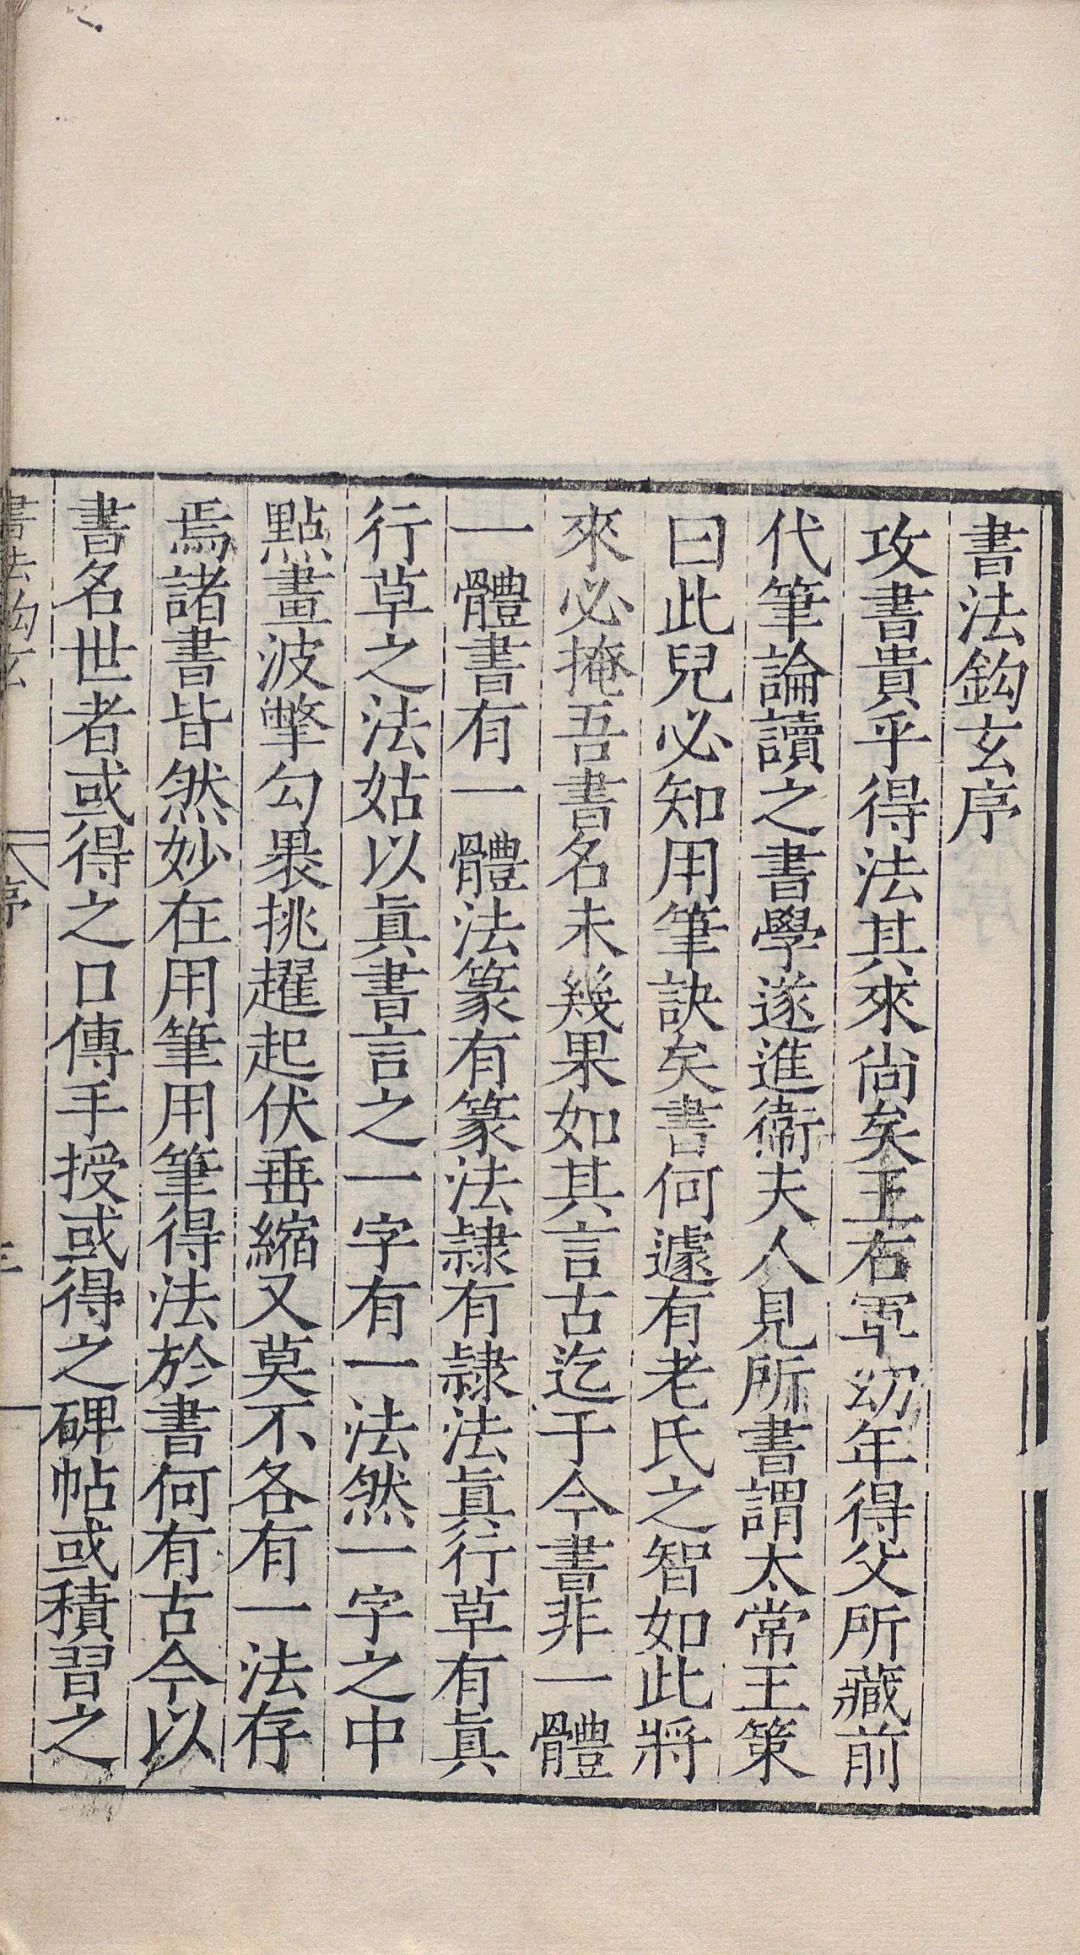 書法鈎玄序
攻書貴乎得法其來尚矣王右軍幼年得父所藏前
代筆論讀之書學遂進衞夫人見所書謂太常王策
曰此兒必知用筆訣矣書何遽有老氏之智如此將
來必掩吾書名未幾果如其言古迄于今書非一體
一體書有一體法篆有篆法隷有隷法眞行草有眞
行草之法姑以眞書言之一字有一法然一字之中
點畫波撆勾褁挑趯起伏垂縮又莫不各有一法存
焉諸書皆然妙在用筆用筆得法於書何有古今以
書名世者或得之口傳手授或得之碑帖或積習之
書法鈎玄 序